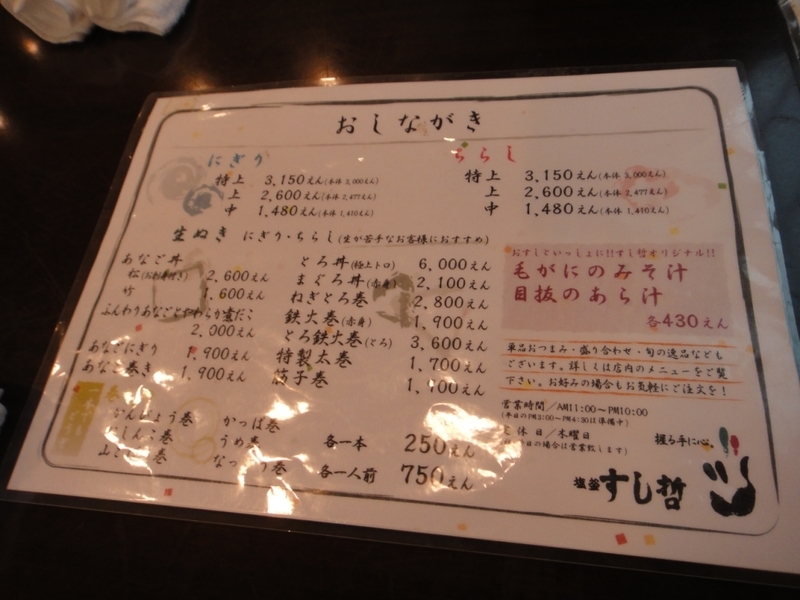 おしながき
にぎり
特上 3,150えん(本体3,000えん)
上 2,600えん(本体2,477えん)
中 1,480えん(本体1,410えん)
ちらし
特上 3,150えん(本体3,000えん)
上 2,600えん(本体2,477えん)
中 1,480えん(本体1,410えん)
生ぬき にぎり・ちらし(生が苦手なお客様におすすめ)
あなご丼
松 2,600えん
竹 1,600えん
ふんわりあなごとやわらか煮だこ
2,000えん
あなごにぎり 1,900えん
あなご巻き 1,900えん
とろ丼(極上トロ) 6,000えん
まぐろ丼(赤身) 2,100えん
ねぎとろ巻 2,800えん
鉄火巻(赤身) 1,900えん
とろ鉄火巻(とろ) 3,600えん
特製太巻 1,700えん
筋子巻
おすしといっしょに!!すし哲オリジナル!!
毛がにのみそ汁
目抜のあら汁
各430えん
単品おつまみ・盛り合わせ・旬の逸品なども
ございます。詳しくは店内のメニューをご覧
下さい。お好みの場合もお気軽にご注文を!
かんぴょう巻 かっぱ巻
おしんこ巻 うめ巻
巻 なっとう巻
各一本 250えん
各一人前 750えん
営業時間/AM11:00〜PM10:00
(平日のPM3:00〜PM4:30は準備中)
定休日/木曜日
の場合は営業致します)
握る手に心。
塩釜 すし哲